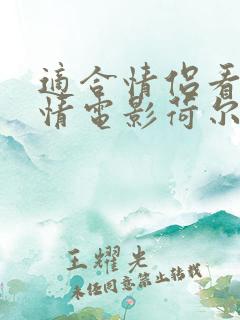 適合情侶看
情電影荷尔
王耀光
未经同意禁止转载